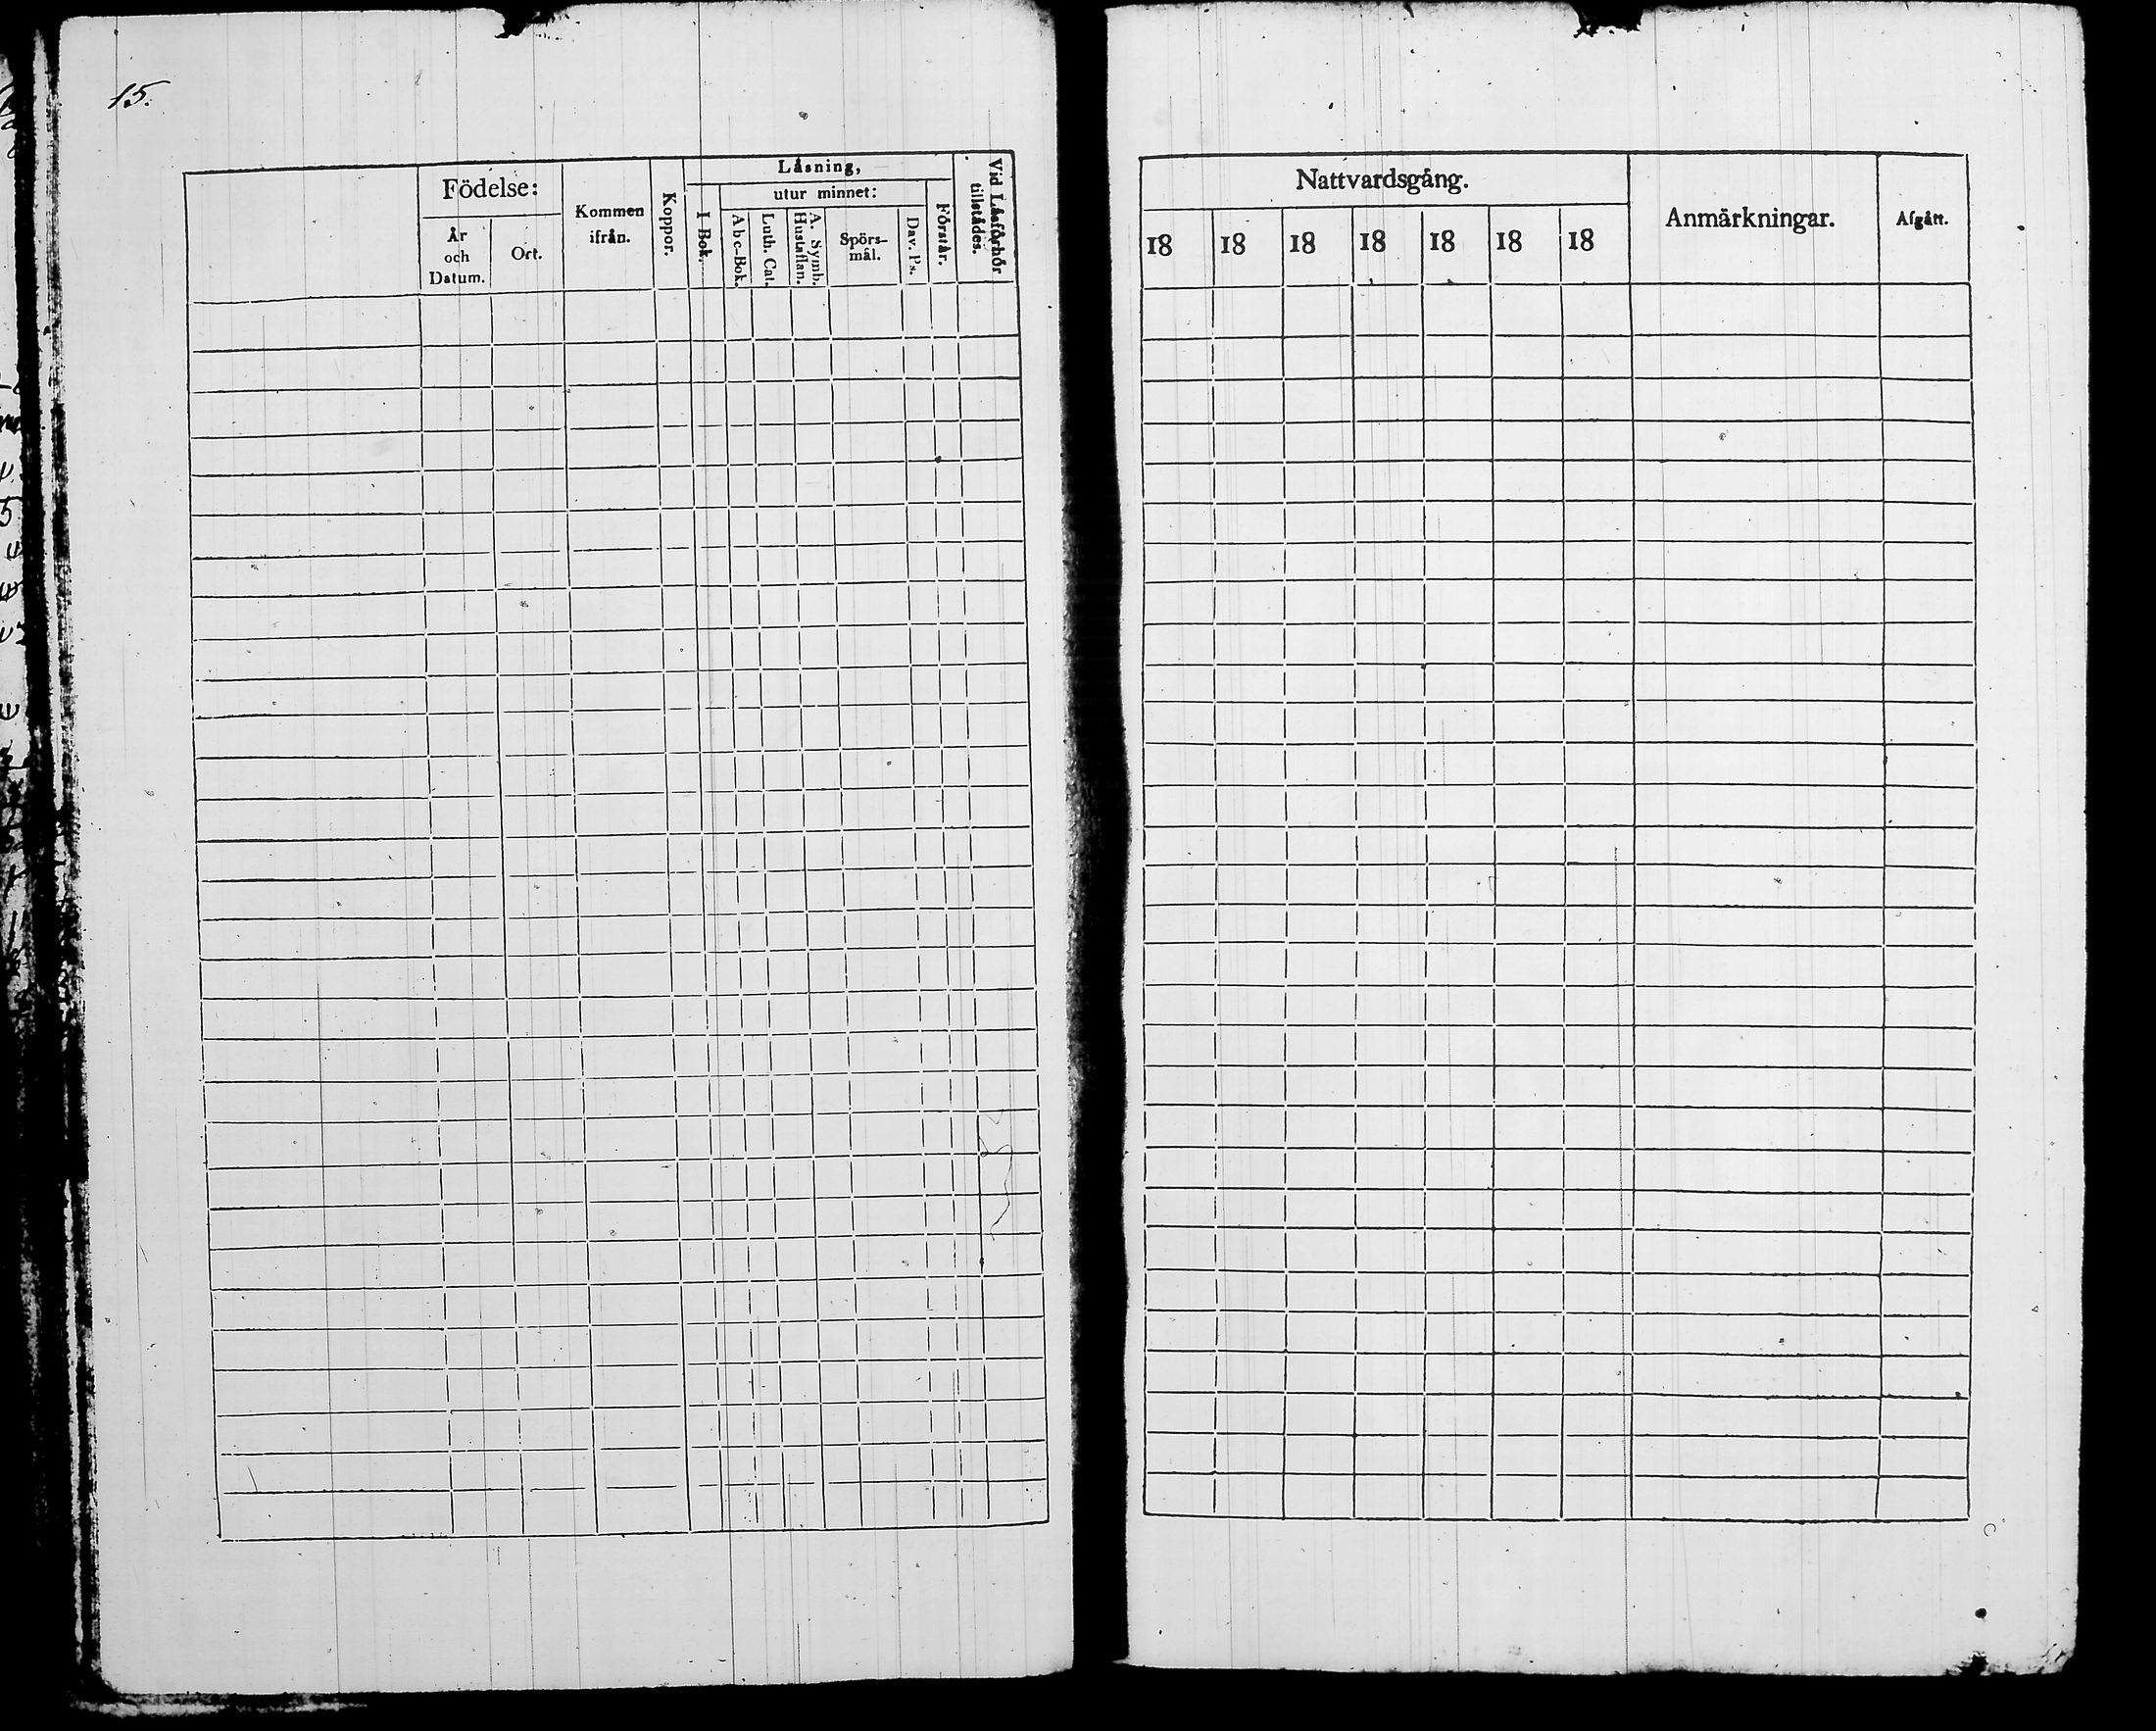 15.
Födelse:
År
och
Datum.
Ort.
Kommen
ifrån.
Koppor.
Låsning,
utur minnet:
I Bok.
Abc-Bok.
Luth. Cat.
A. Symb.
Hustaflan.
Spörs-
mål.
Dav. Ps.
Förstår.
Vid Låsförhör
tillstädes.
Nattvardsgång.
18 18 18 18 18 18 18
Anmärkningar.
Afgått.